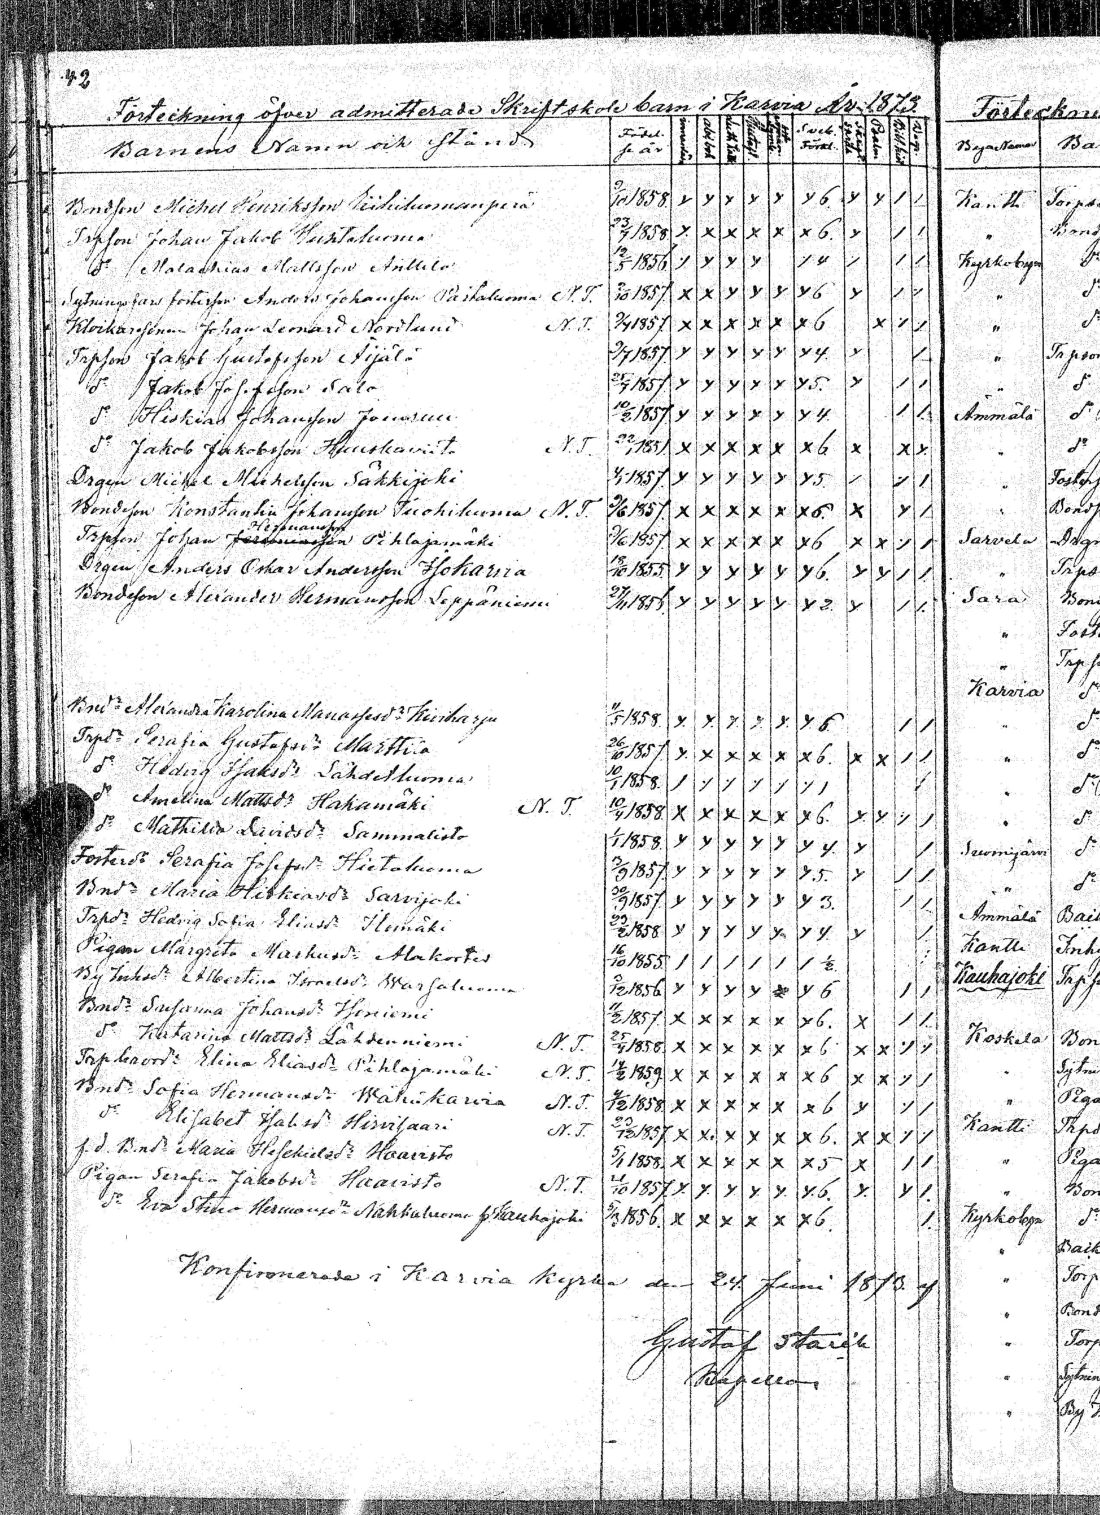 42
Förteckning öfver admitterade Skriftskole barn i Karvia År 1873.
Barnens Namn och Stånd Födel se år innanläs abc bok Sv. k. Förkl. Psalm Bibl. hist Begr.
Bndson Michel Henriksson 9/10 1858 y y y y y y 6. y y 1 1
Trpson Johan Jakob Huhtaluoma 23/7 1858 x x x x x x 6. y 1 1
d:o Malachias Mattsson Anttila 12/5 1856 1 y y y 1 4 1 1 1
Sytningsfars fosterson Anders Johansson Pastoluoma N.T. 2/10 1857 x x y y y y 6 y 1 y
Klockaresonen Johan Leonard Nordlund N.T. 9/4 1857 x x x x x x 6 x y 1
Trpson Jakob Gustafsson Äijälä 9/7 1857 y y y y y y 4. y 1
d:o Jakob Josefsson Salo 25/7 1857 y y y y y y 5. y 1 1
d:o Hiskias Johansson 10/2 1857 y y y y y y 4. 1 1
d:o Jakob Jakobsson N.T. 22/1 1851 x x x x x x 6 x x y
Drgen Michel Michelsson Säkkijoki 4/1 1857 y y y y y y 5. 1 y 1
Bondeson Konstantin Johansson Tuohiluoma N.T. 9/6 1857 x x x x x x 6. x y 1
Trpson Johan Hermansson Pihlajamäki 9/6 1857 x x x x x x 6 x x y 1
Drgen Anders Oskar Andersson Isokarvia 19/10 1855 y y y y y y 6. y y 1 1
Bondeson Alexander Hermansson Leppäniemi 27/11 1856 y y y y y y 2. y 1 1
Bndr Alexandra Karolina Manassesdr Kiviharju 4/5 1858 y y y y y y 6 1 1
Trpdr Serafia Gustafsdr Marttila 26/10 1857 y x x x x x 6. x x 1 1
d:o Hedvig Isaksdr Lähdetluoma 10/1 1858. 1 y y y y y 1 1
d:o Amelina Mattsdr Hakamäki N.T. 10/4 1858 x x x x x x 6. x y y 1
d:o Mathilda Davidsdr Sammalisto 1/1 1858 y y y y y y 4. y 1
Fosterdr Serafia Josefsdr Hietaluoma 3/9 1857 y y y y y y 5. y 1 1
Bndr Maria Hiskiasdr Sarvijoki 30/9 1857 y y y y y y 3. 1 1
Trpdr Hedvig Sofia Eliasdr Ilomäki 22/2 1858 y y y y y y 4. y 1
Pigan Margreta Markusdr Alakortes 16/10 1855 1 1 1 1 1 1 ½
Albertina Israelsdr Warsaluoma 9/12 1856 y y y y y y 6 1 1
Bndr Susanna Johansdr Honiemi 14/2 1857. x x x x x x 6. x 1 1
d:o Katarina Mattsdr Lähdenniemi N.T. 25/4 1858 x x x x x x 6 x x y y
Elina Eliasdr Pihlajamäki N.T. 14/2 1859 x x x x x x 6 x x y 1
Bndr Sofia Hermansdr Wähäkarvia N.T. 4/12 1858 x x x x x x 6 y y 1
d:o Elisabet Isaksdr Hirvisaari N.T. 23/12 1857 x x y y y x 6. x x 1 1
f.d. Bndr Maria Hesekielsdr Haavisto 5/1 1858 x x x x x x 5 x 1 1
Pigan Serafia Jakobsdr Haavisto N.T. 21/10 1857 y y y y y y 6. y y 1.
d:o Eva Stina Hermansdr Nahkaluoma fr Kauhajoki 5/3 1856. x x x x x x 6. 1.
Konfirmerade i Karvia kyrka den 24 Juni 1873. af
Gustaf Starck
Kapellan.
Förteckn
Byns Namn Ba
Kantti Torpso
" Bond
Kyrkobyn d:o
" d:o
" d:o
" Trpson
" d:o
Ämmälä d:o
" d:o
" Foster
" Bonds
Sarvela Drgn
" Trps
Sara Bon
" Fost
" Trpso
Karvia d:o
" d:o
" d:o
" d:o
" d:o
Suomijärvi d:o
" d:o
Ämmälä Back
Kantti Inh
Kauhajoki Trps
Koskela Bon
" Sytni
" Piga
Kantti Trpd
" Piga
" Bon
Kyrkobyn d:o
" Back
" Torp
" Bond
" Torp
" Sytnin
" By